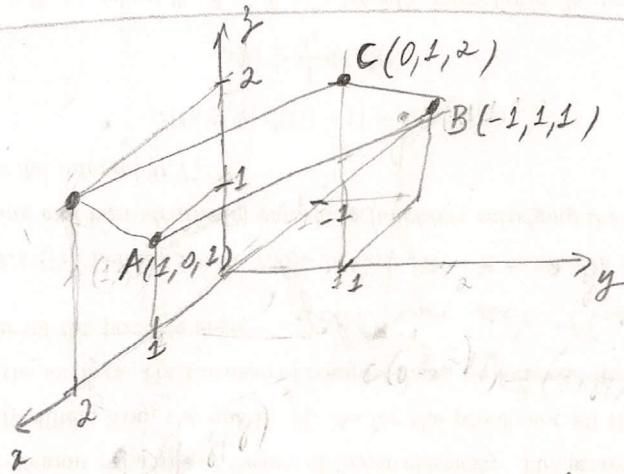 z
2
C(0,1,2)
B(-1,1,1)
1
-1
A(1,0,1)
1
1
2
y
2
x